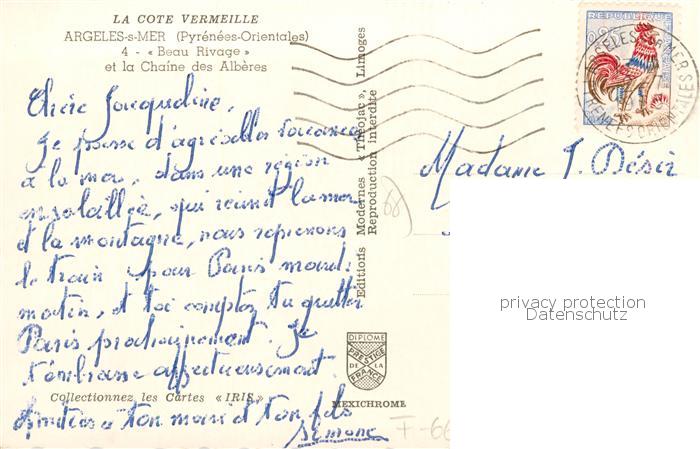 LA COTE VERMEILLE
ARGELES-s-MER (Pyrénées-Orientales)
4 - « Beau Rivage »
et la Chaîne des Albères
Chère Jacqueline,
Je passe d'agréables vacances
à la mer, dans une région
ensoleillée, qui réunit la mer
et la montagne, nous reprenons
le train pour Paris mardi
matin, et toi comptes tu quitter
Paris prochainement. Je
t'embrasse affectueusement.
Collectionnez les Cartes « IRIS »
Amitiés à ton mari et ton fils
Simone
Editions Modernes « Théojac », Limoges
Reproduction interdite
68
DIPLOME
PRESTIGE
DE LA
FRANCE
MEXICHROME
F-66
REPUBLIQUE FRANÇAISE
0,25
ARGELES-SUR-MER
PYRENEES ORIENTALES
Madame J. Désir
privacy protection
Datenschutz